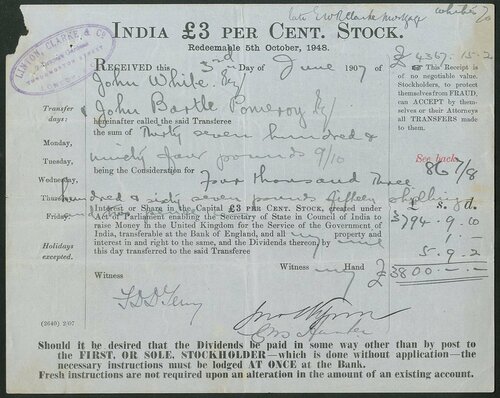 late E W R Clarke mortgage
INDIA £3 PER CENT. STOCK.
Redeemable 5th October, 1948.
LINTON, CLARKE, & CO
£4367.15.2
RECEIVED this 3rd Day of June 1907 of
John White Esq
& John Bartle Pomeroy Esq
hereinafter called the said Transferee
the sum of Thirty seven hundred &
ninety four pounds 9/10
being the Consideration for Four thousand Three
hundred & sixty seven pounds fifteen shillings
Interest or Share in the Capital £3 PER CENT. STOCK, created under
Act of Parliament enabling the Secretary of State in Council of India to
raise Money in the United Kingdom for the Service of the Government of
India, transferable at the Bank of England, and all my property and
interest in and right to the same, and the Dividends thereon, by
this day transferred to the said Transferee
Transfer
days:
Monday,
Tuesday,
Wednesday,
Thursday,
Friday,
Holidays
excepted.
This Receipt is
of no negotiable value.
Stockholders, to protect
themselves from FRAUD,
can ACCEPT by themselves
or their Attorneys
all TRANSFERS made
to them.
See back
86 7/8
£ s. d.
3794.9.10
1.-
5.9.2
£3800.-.-
Witness my Hand
Witness
(2640) 2/07
Should it be desired that the Dividends be paid in some way other than by post to
the FIRST, OR SOLE, STOCKHOLDER—which is done without application—the
necessary instructions must be lodged AT ONCE at the Bank.
Fresh instructions are not required upon an alteration in the amount of an existing account.